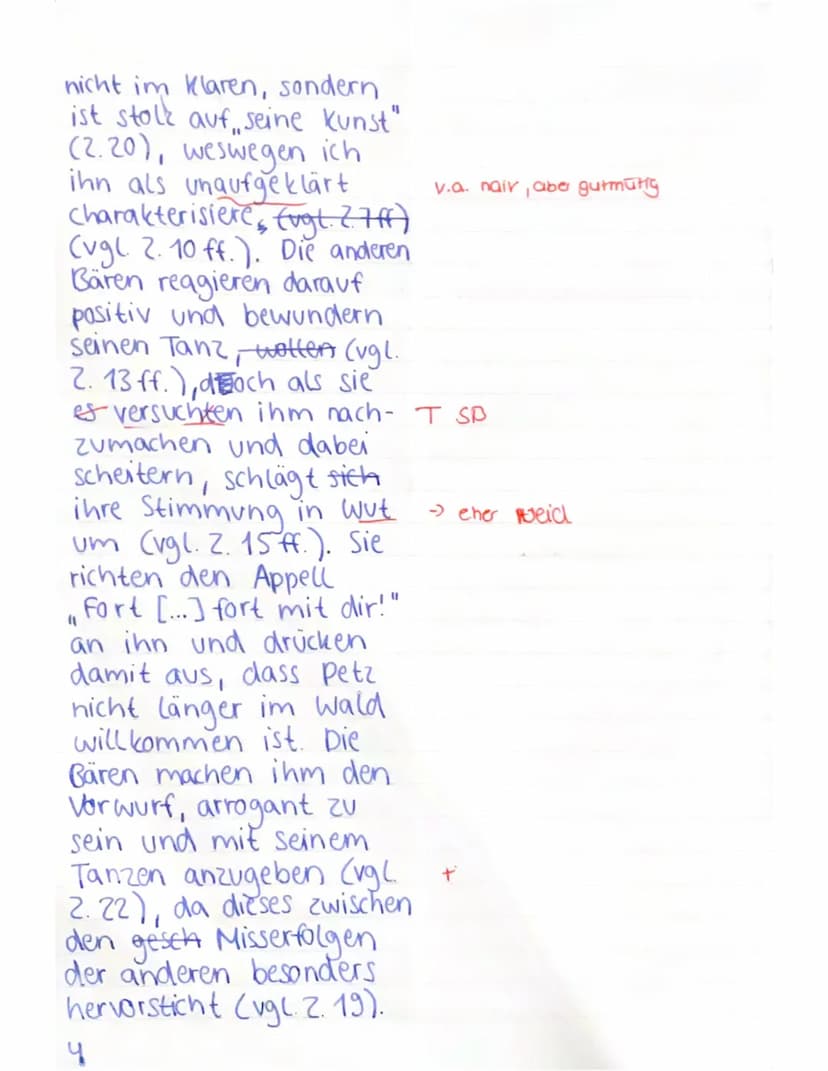 nicht im Klaren, sondern
ist stolz auf „seine Kunst"
(Z. 20), weswegen ich
ihn als unaufgeklärt
v.a. naiv, aber gutmütig
charakterisiere, (vgl. Z. 7 ff)
(vgl. Z. 10 ff.). Die anderen
Bären reagieren darauf
positiv und bewundern
seinen Tanz, wollen (vgl.
Z. 13 ff.), doch als sie
es versuchten ihm nach-
T SB
zumachen und dabei
scheitern, schlägt sich
ihre Stimmung in Wut
→ eher Neid
um (vgl. Z. 15 ff.). Sie
richten den Appell
„Fort [...] fort mit dir!"
an ihn und drücken
damit aus, dass Petz
nicht länger im Wald
willkommen ist. Die
Bären machen ihm den
Vorwurf, arrogant zu
sein und mit seinem
Tanzen anzugeben (vgl.
+
Z. 22), da dieses zwischen
den gesch Misserfolgen
der anderen besonders
hervorsticht (vgl. Z. 19).
4